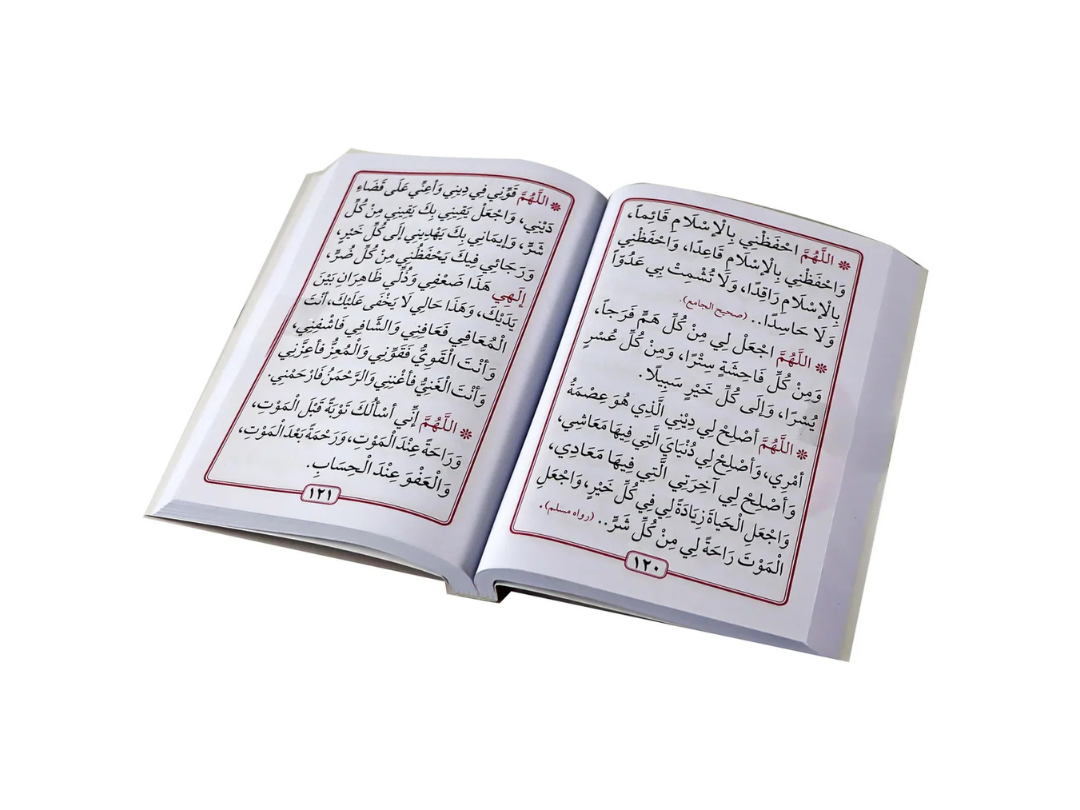 ❊ اللَّهُمَّ احْفَظْنِي بِالْإِسْلَامِ قَائِماً،
وَاحْفَظْنِي بِالْإِسْلَامِ قَاعِدًا، وَاحْفَظْنِي
بِالْإِسْلَامِ رَاقِدًا، وَلَا تُشْمِتْ بِي عَدُوًّا
وَلَا حَاسِدًا... (صحيح الجامع).
❊ اللَّهُمَّ اجْعَلْ لِي مِنْ كُلِّ هَمٍّ فَرَجاً،
وَمِنْ كُلِّ فَاحِشَةٍ سِتْرًا، وَمِنْ كُلِّ عُسْرٍ
يُسْرًا، وَإِلَى كُلِّ خَيْرٍ سَبِيلًا.
❊ اللَّهُمَّ أَصْلِحْ لِي دِيْنِي الَّذِي هُوَ عِصْمَةُ
أَمْرِي، وَأَصْلِحْ لِي دُنْيَايَ الَّتِي فِيهَا مَعَاشِي،
وَأَصْلِحْ لِي آخِرَتِي الَّتِي فِيهَا مَعَادِي،
وَاجْعَلِ الْحَيَاةَ زِيَادَةً لِي فِي كُلِّ خَيْرٍ، وَاجْعَلِ
الْمَوْتَ رَاحَةً لِي مِنْ كُلِّ شَرٍّ.. (رواه مسلم).
١٢٠
❊ اللَّهُمَّ قَوِّنِي فِي دِينِي وَأَعِنِّي عَلَى قَضَاءِ
دَيْنِي، وَاجْعَلْ يَقِينِي بِكَ يَقِينِي مِنْ كُلِّ
شَرٍّ، وَإِيمَانِي بِكَ يَهْدِينِي إِلَى كُلِّ خَيْرٍ،
وَرَجَائِي فِيكَ يَحْفَظُنِي مِنْ كُلِّ ضُرٍّ،
إِلَهِي هَذَا ضَعْفِي وَذُلِّي ظَاهِرَانِ بَيْنَ
يَدَيْكَ، وَهَذَا حَالِي لَا يَخْفَى عَلَيْكَ، أَنْتَ
الْمُعَافِي فَعَافِنِي وَالشَّافِي فَاشْفِنِي،
وَأَنْتَ الْقَوِيُّ فَقَوِّنِي وَالْمُعِزُّ فَأَعِزَّنِي
وَأَنْتَ الْغَنِيُّ فَأَغْنِنِي وَالرَّحْمَنُ فَارْحَمْنِي.
❊ اللَّهُمَّ إِنِّي أَسْأَلُكَ تَوْبَةً قَبْلَ الْمَوْتِ،
وَرَاحَةً عِنْدَ الْمَوْتِ، وَرَحْمَةً بَعْدَ الْمَوْتِ،
وَالْعَفْوَ عِنْدَ الْحِسَابِ.
١٢١